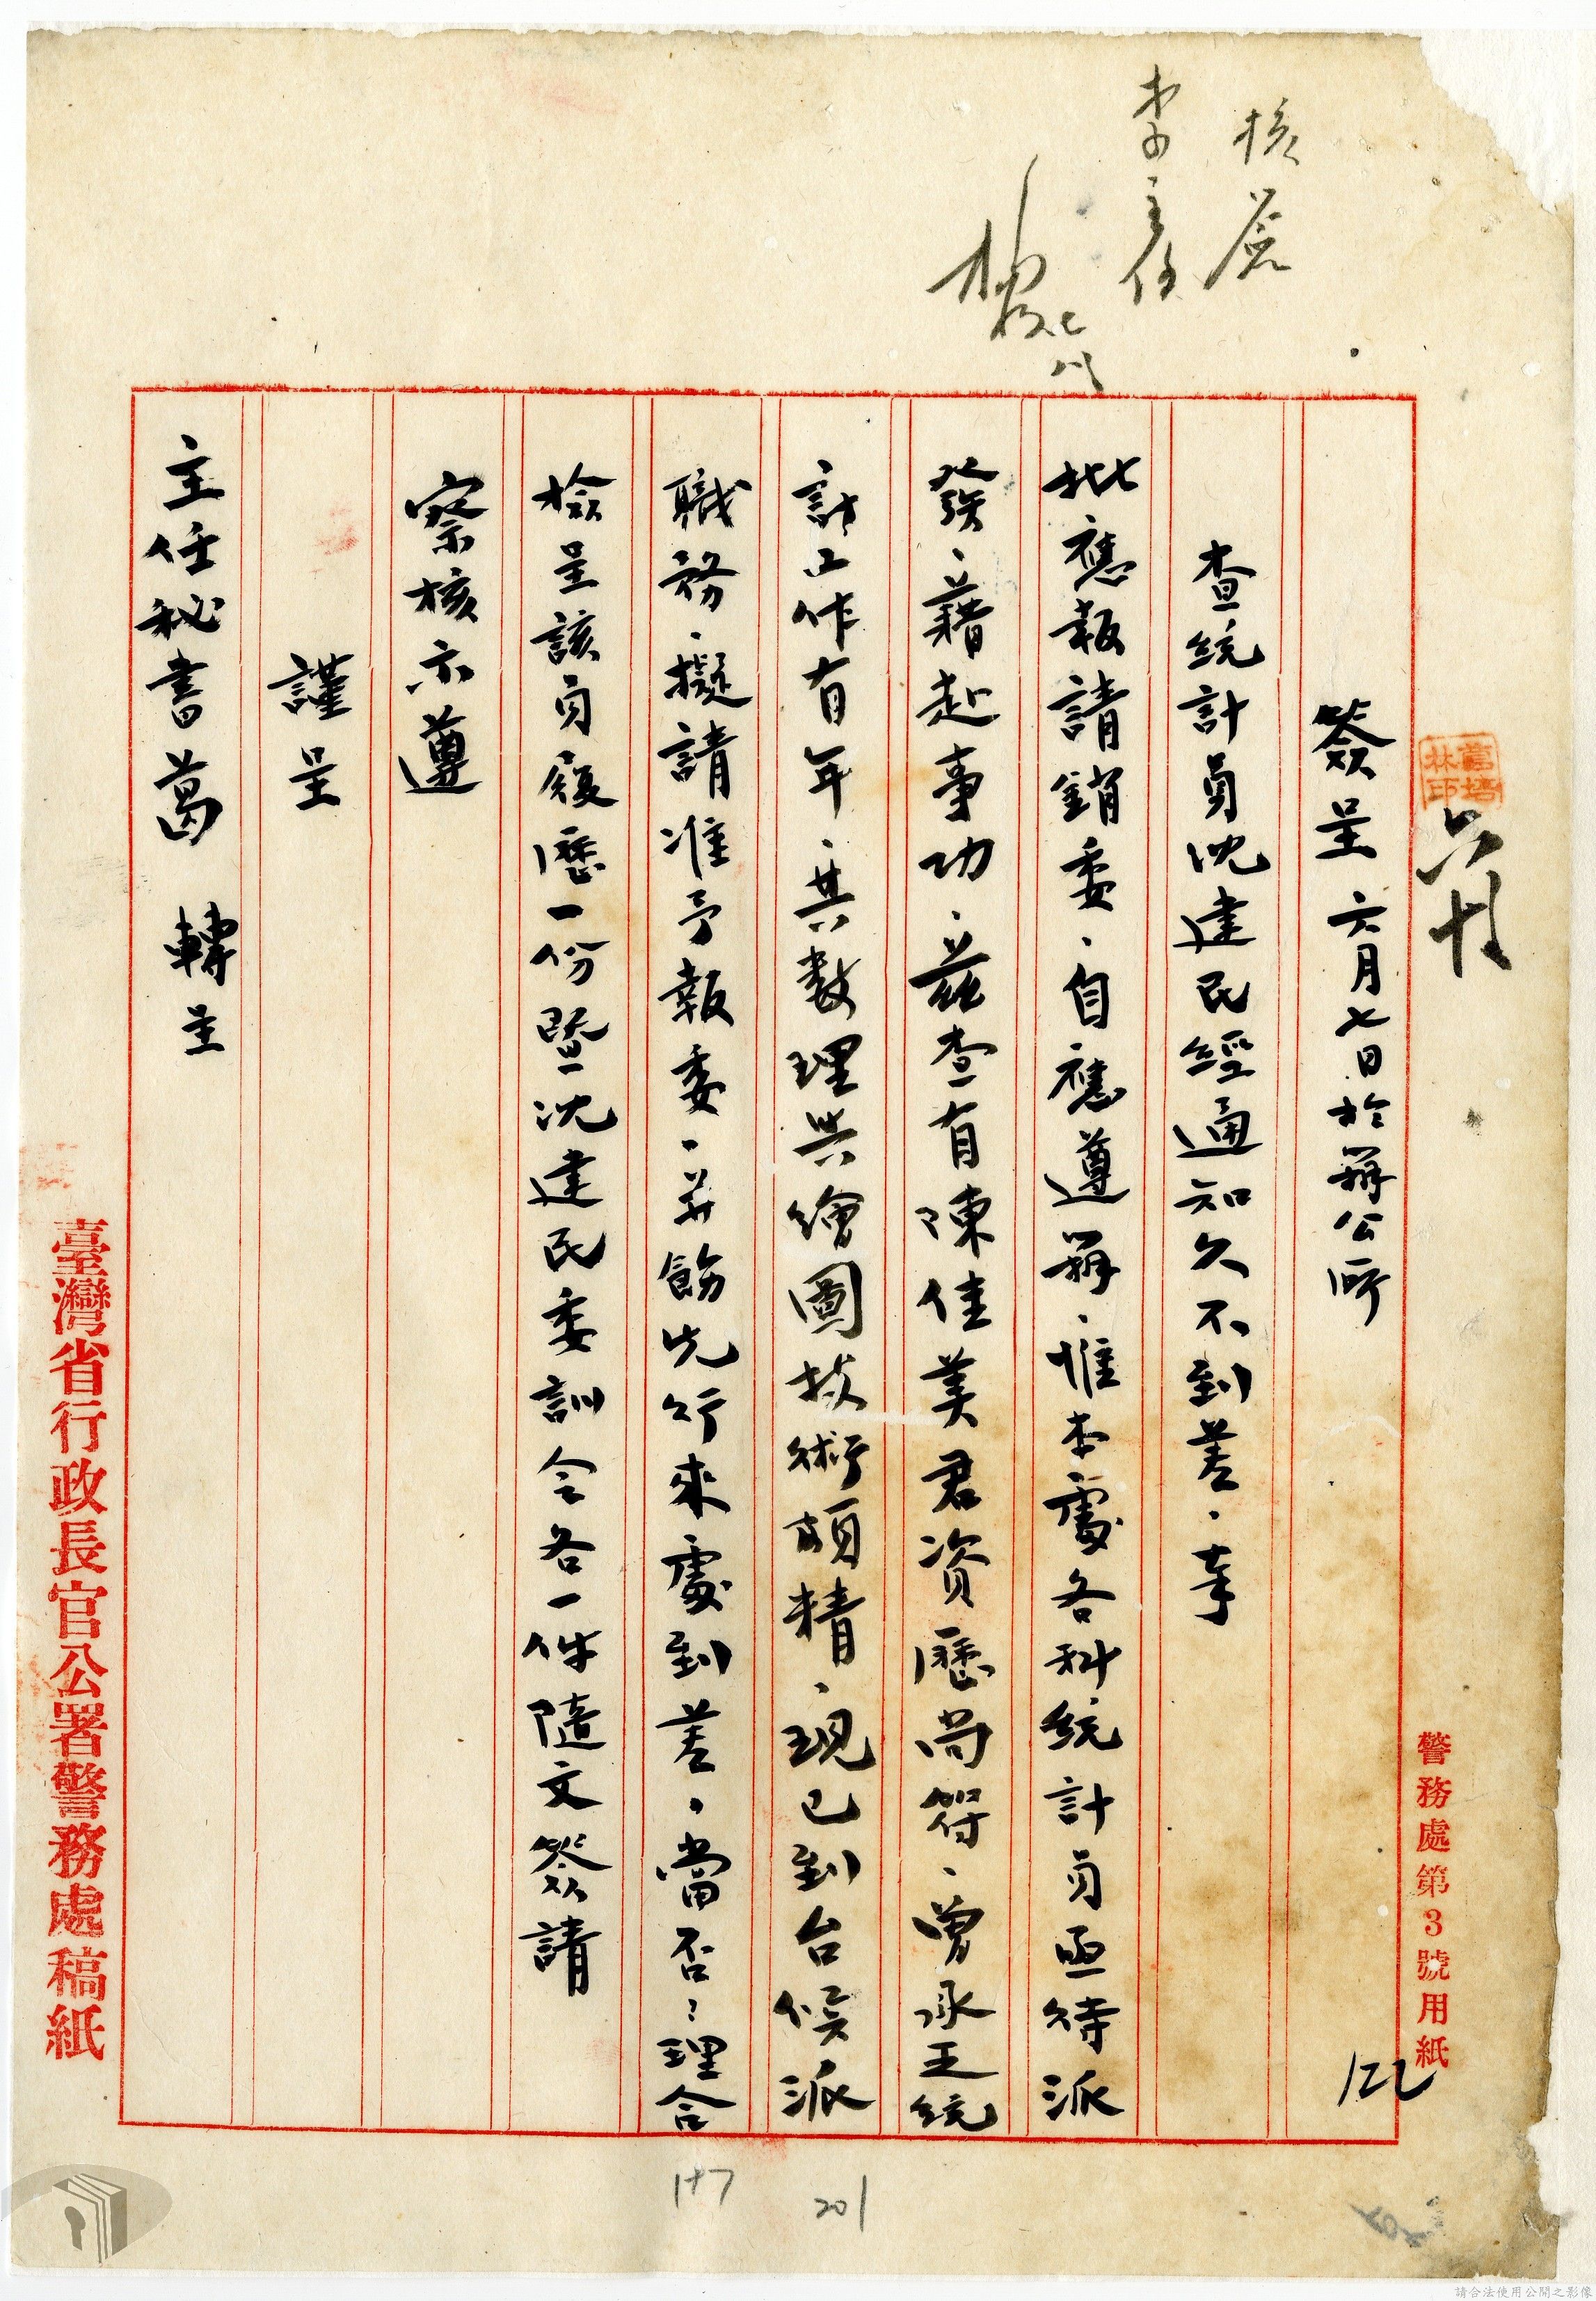 核簽
李主任
七八
葛培林印
六月
簽呈 六月七日於辦公所
查統計員沈建民經通知久不到差、奉
批應報請銷委、自應遵辦、惟本處各科統計員亟待派
發、藉赴事功、茲查有陳佳美君資歷尚符、曾承主統
計工作有年、其數理與繪圖技術頗精、現已到台候派
職務、擬請准予報委、並飭先行來處到差、當否、理合
檢呈該員履歷一份暨沈建民委訓令各一件隨文簽請
察核示遵
謹呈
主任秘書葛 轉呈
臺灣省行政長官公署警務處稿紙
警務處第3號用紙
122
147
201
請合法使用公開之影像